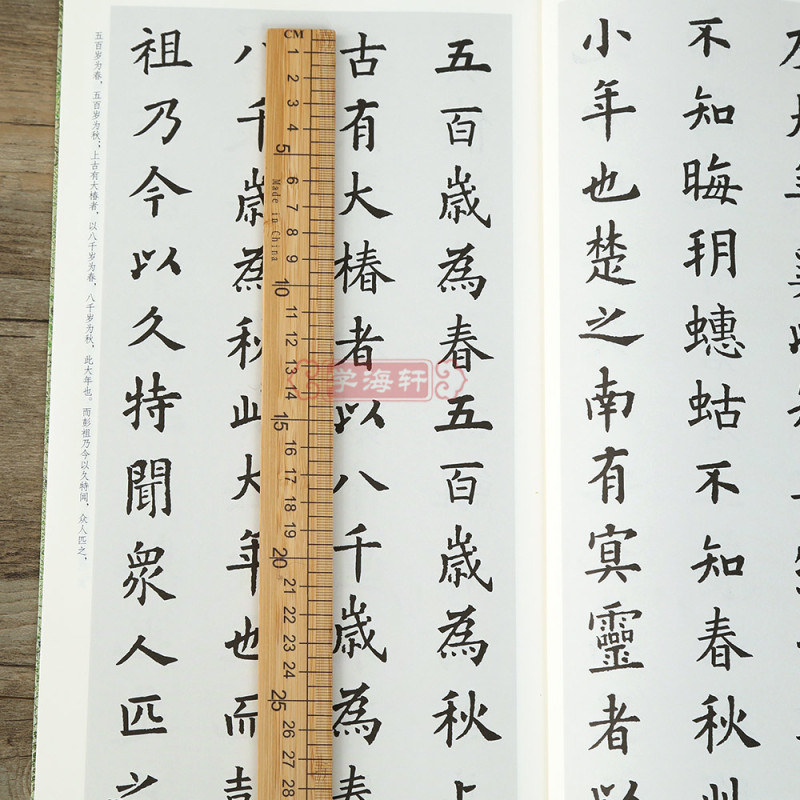 不知晦朔蟪蛄不知春秋此
小年也楚之南有冥靈者以
五百歲為春五百歲為秋上
古有大椿者以八千歲為春
八千歲為秋此大年也而彭
祖乃今以久特聞衆人匹之
五百岁为春，五百岁为秋；上古有大椿者，以八千岁为春，八千岁为秋，此大年也。而彭祖乃今以久特闻，众人匹之，
CM
1
2
3
4
5
6
7
8
9
10
11
12
13
14
15
16
17
18
19
20
21
22
23
24
25
26
27
28
Made in China
学海轩